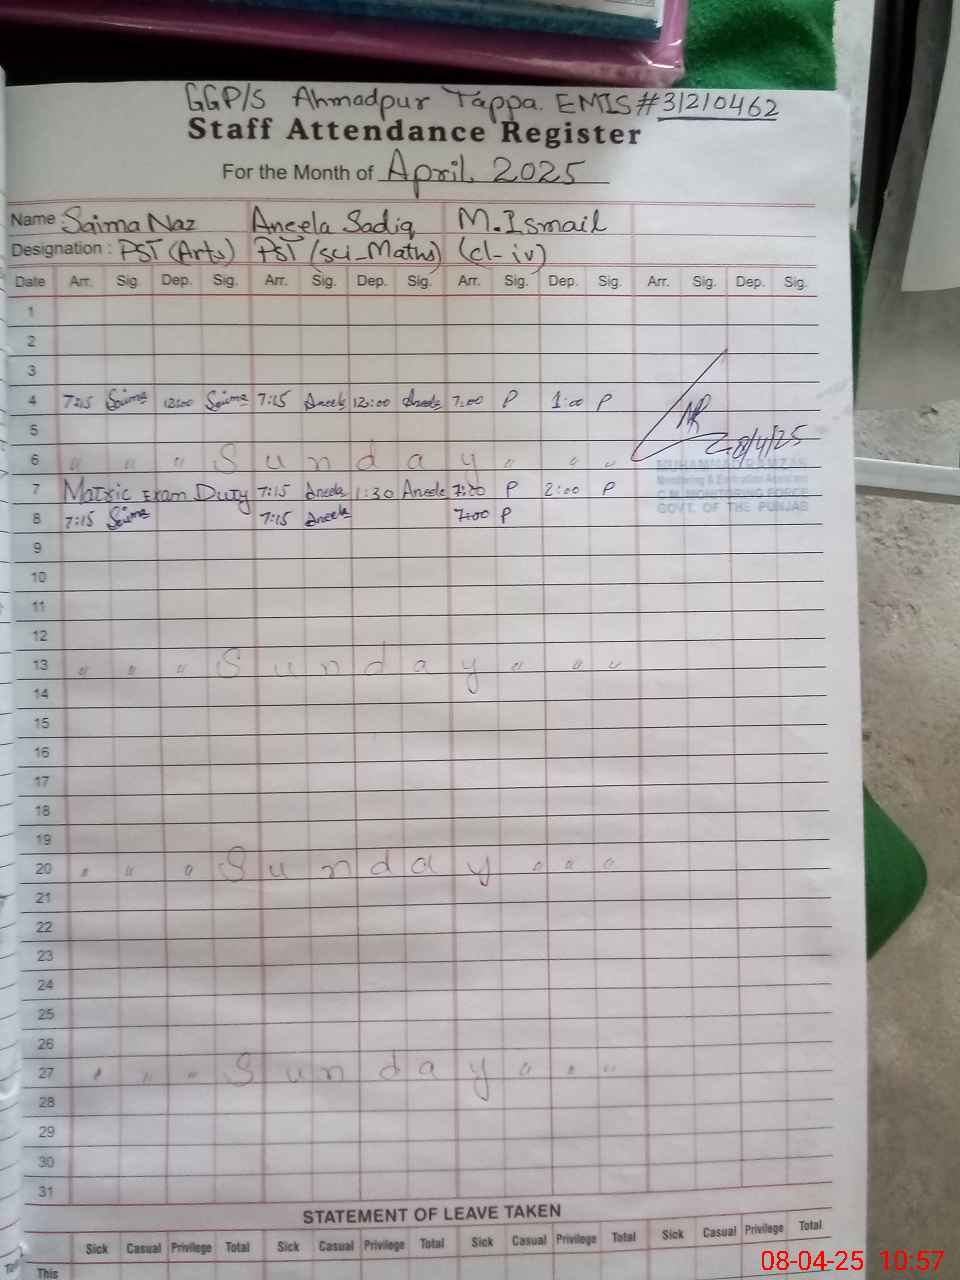 GGP/S Ahmadpur Tappa. EMIS#31210462
Staff Attendance Register
For the Month of April, 2025
Name : Saima Naz Aneela Sadiq M. Ismail
Designation : PST (Arts) PST (sci_Maths) (cl-iv)
Date Arr. Sig. Dep. Sig. Arr. Sig. Dep. Sig. Arr. Sig. Dep. Sig. Arr. Sig. Dep. Sig.
1
2
3
4 7:15 Saima 12:00 Saima 7:15 Aneela 12:00 Aneela 7:00 P 1:00 P
5
6 " " " Sunday " " "
8/4/25
MUHAMMAD RAMZAN
7 Matric Exam Duty 7:15 Aneela 1:30 Aneela 7:00 P 2:00 P
Monitoring & Evaluation Assistant
C.M. MONITORING FORCE
GOVT. OF THE PUNJAB
8 7:15 Saima 7:15 Aneela 7:00 P
9
10
11
12
13 " " " Sunday " " "
14
15
16
17
18
19
20 " " " Sunday " " "
21
22
23
24
25
26
27 " " " Sunday " " "
28
29
30
31
STATEMENT OF LEAVE TAKEN
Sick Casual Privilege Total Sick Casual Privilege Total Sick Casual Privilege Total Sick Casual Privilege Total
This
08-04-25 10:57